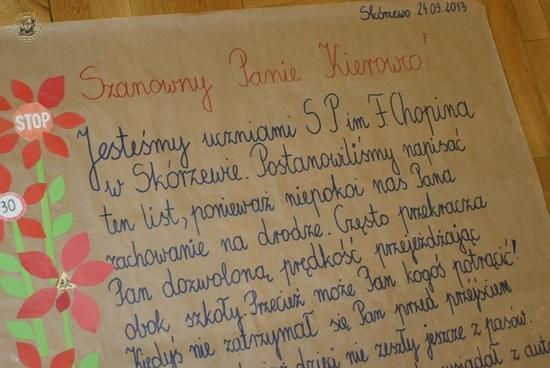 Skórzewo 24.09.2013
Szanowny Panie Kierowco!
STOP
30
Jesteśmy uczniami S P im F. Chopina
w Skórzewie. Postanowiliśmy napisać
ten list, ponieważ niepokoi nas Pana
zachowanie na drodze. Często przekracza
Pan dozwoloną prędkość przejeżdżając
obok szkoły. Przecież może Pan kogoś potrącić!
Kiedyś nie zatrzymał się Pan przed przejściem
dzieci nie zeszły jeszcze z pasów.
z